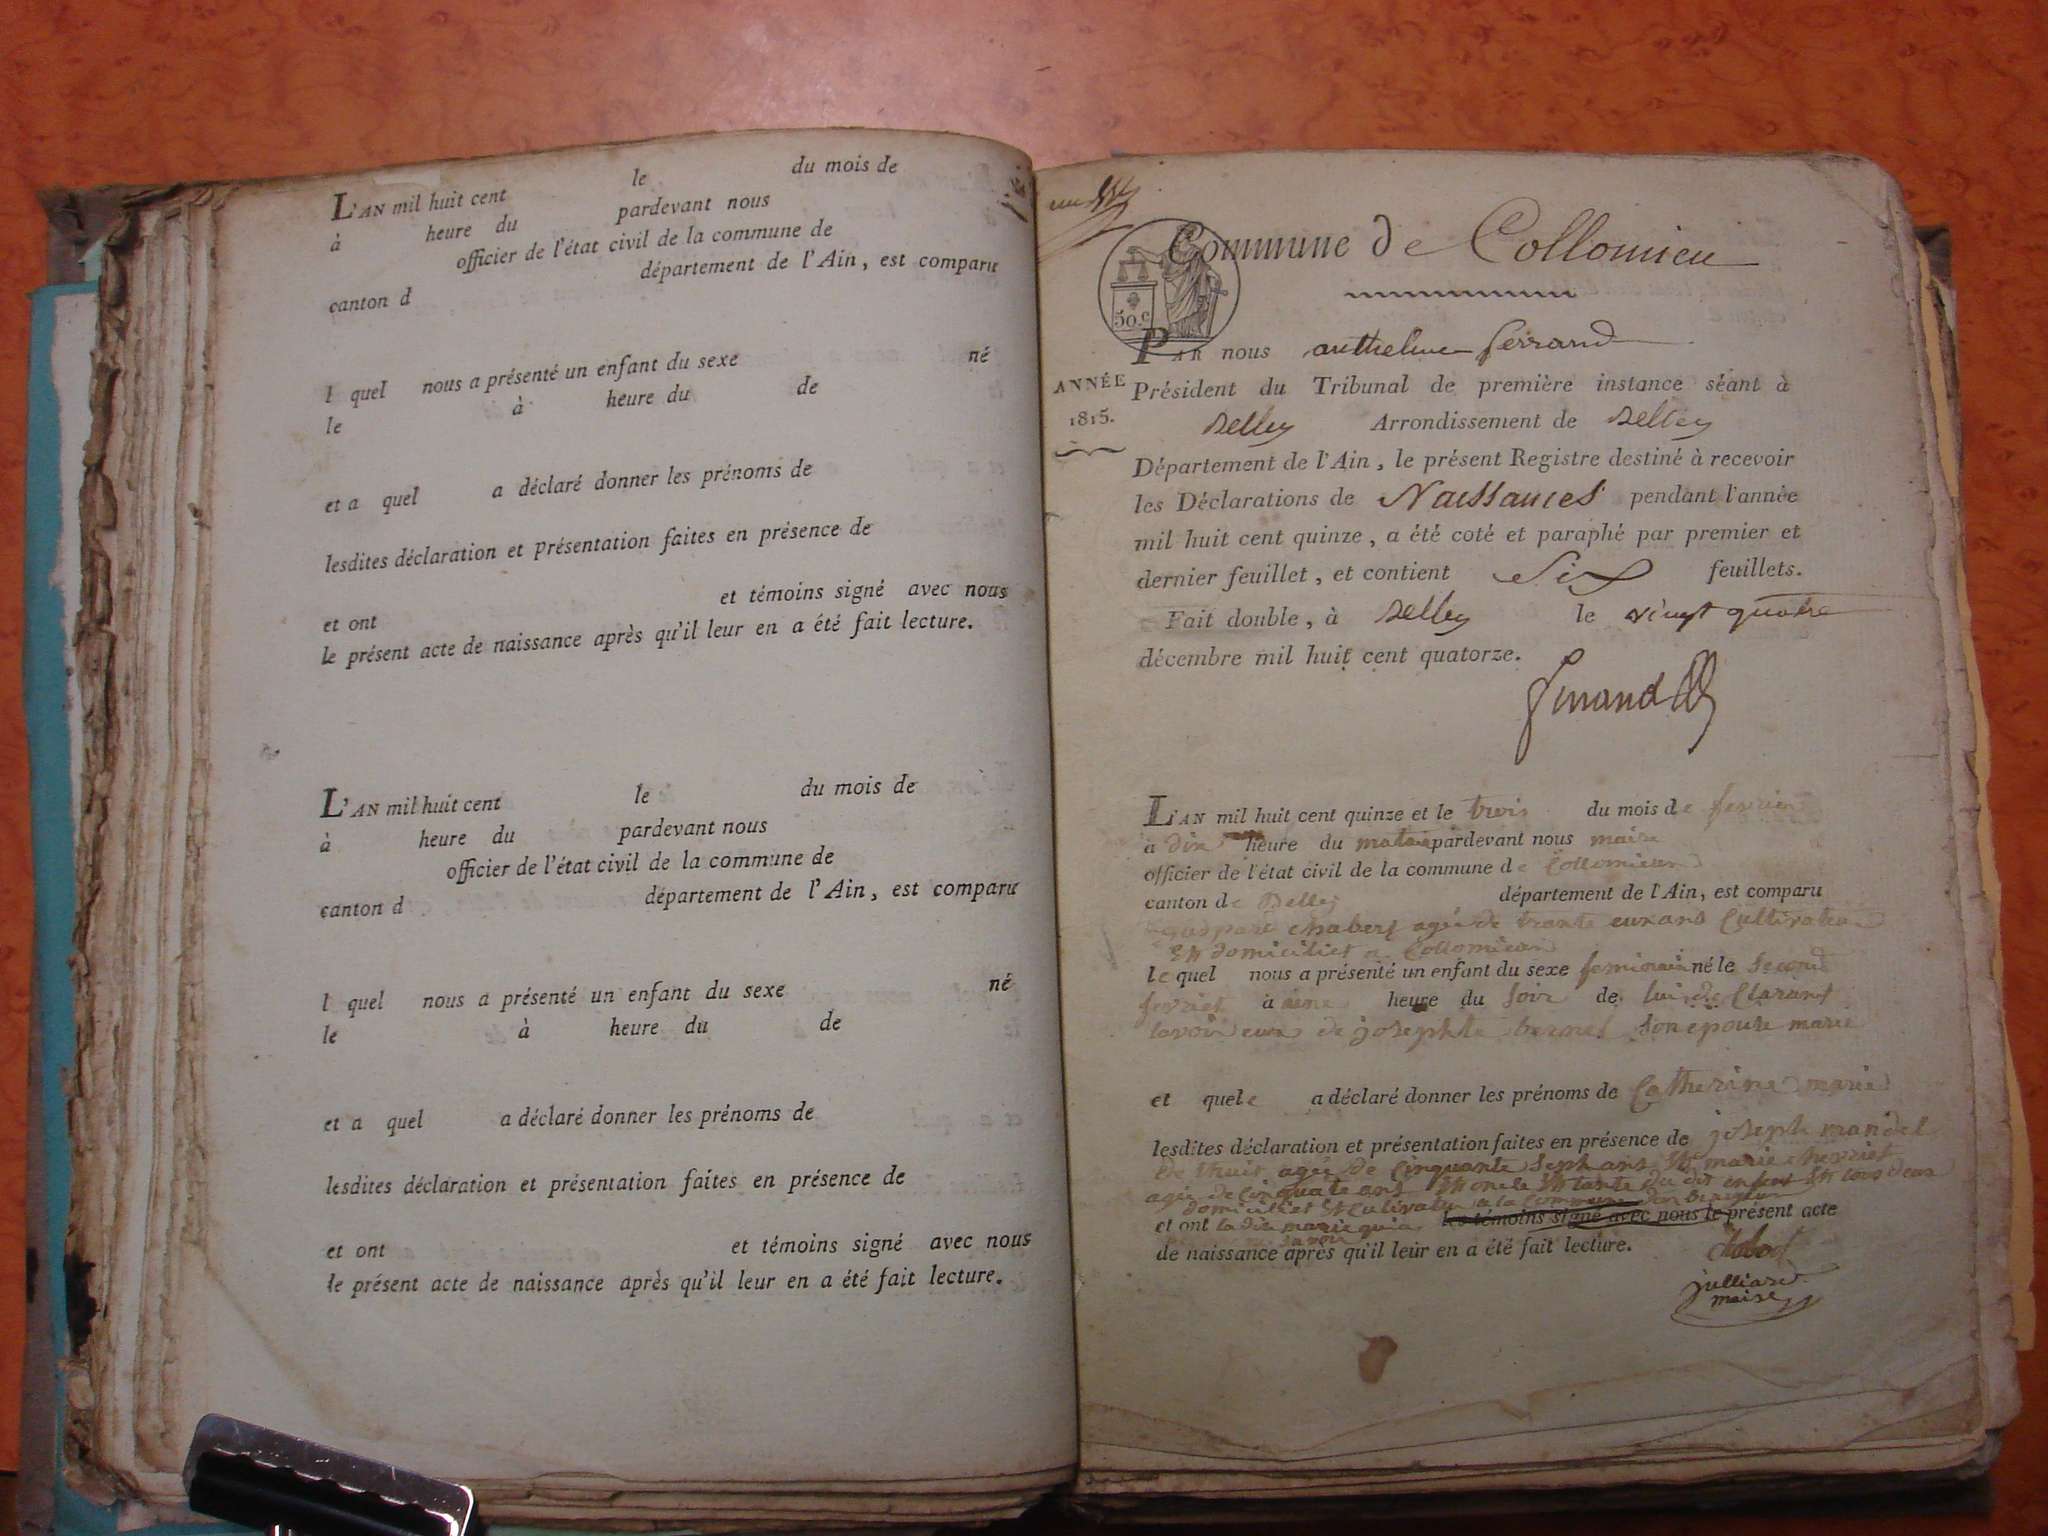 L'AN mil huit cent le du mois de
à heure du pardevant nous
officier de l'état civil de la commune de
canton d département de l'Ain, est comparu
l quel nous a présenté un enfant du sexe né
le à heure du de
et a quel a déclaré donner les prénoms de
lesdites déclaration et présentation faites en présence de
et ont et témoins signé avec nous
le présent acte de naissance après qu'il leur en a été fait lecture.
L'AN mil huit cent le du mois de
à heure du pardevant nous
officier de l'état civil de la commune de
canton d département de l'Ain, est comparu
l quel nous a présenté un enfant du sexe né
le à heure du de
et a quel a déclaré donner les prénoms de
lesdites déclaration et présentation faites en présence de
et ont et témoins signé avec nous
le présent acte de naissance après qu'il leur en a été fait lecture.
Commune de Collomieu
50 c
PAR nous anthelme ferrand
ANNÉE
1815.
Président du Tribunal de première instance séant à
Belley Arrondissement de Belley
Département de l'Ain, le présent Registre destiné à recevoir
les Déclarations de Naissances pendant l'année
mil huit cent quinze, a été coté et paraphé par premier et
dernier feuillet, et contient Six feuillets.
Fait double, à Belley le vingt quatre
décembre mil huit cent quatorze.
L'AN mil huit cent quinze et le trois du mois de fevrier
à dix heure du matin pardevant nous maire
officier de l'état civil de la commune de Collomieux
canton de Belley département de l'Ain, est comparu
gaspard chabert agée de trante eun ans Cultivateur
Et domiciliet a Collomieux
le quel nous a présenté un enfant du sexe feminain né le Second
fevriet à eune heure du Soir de lui de Clarant
lavoir eux de josephte bernet Son epouse marie
et quele a déclaré donner les prénoms de Catherine marie
lesdites déclaration et présentation faites en présence de joseph mandel
agée de Cinquante Sept ans Et marie cherviet
agée de Cinquate ans Et oncle Et tante du dit enfent Et tous deux
domiciliet Et Cultivateur a la Commune
et ont la dite marie les témoins signé avec nous le présent acte
de naissance après qu'il leur en a été fait lecture.
julliard
maire